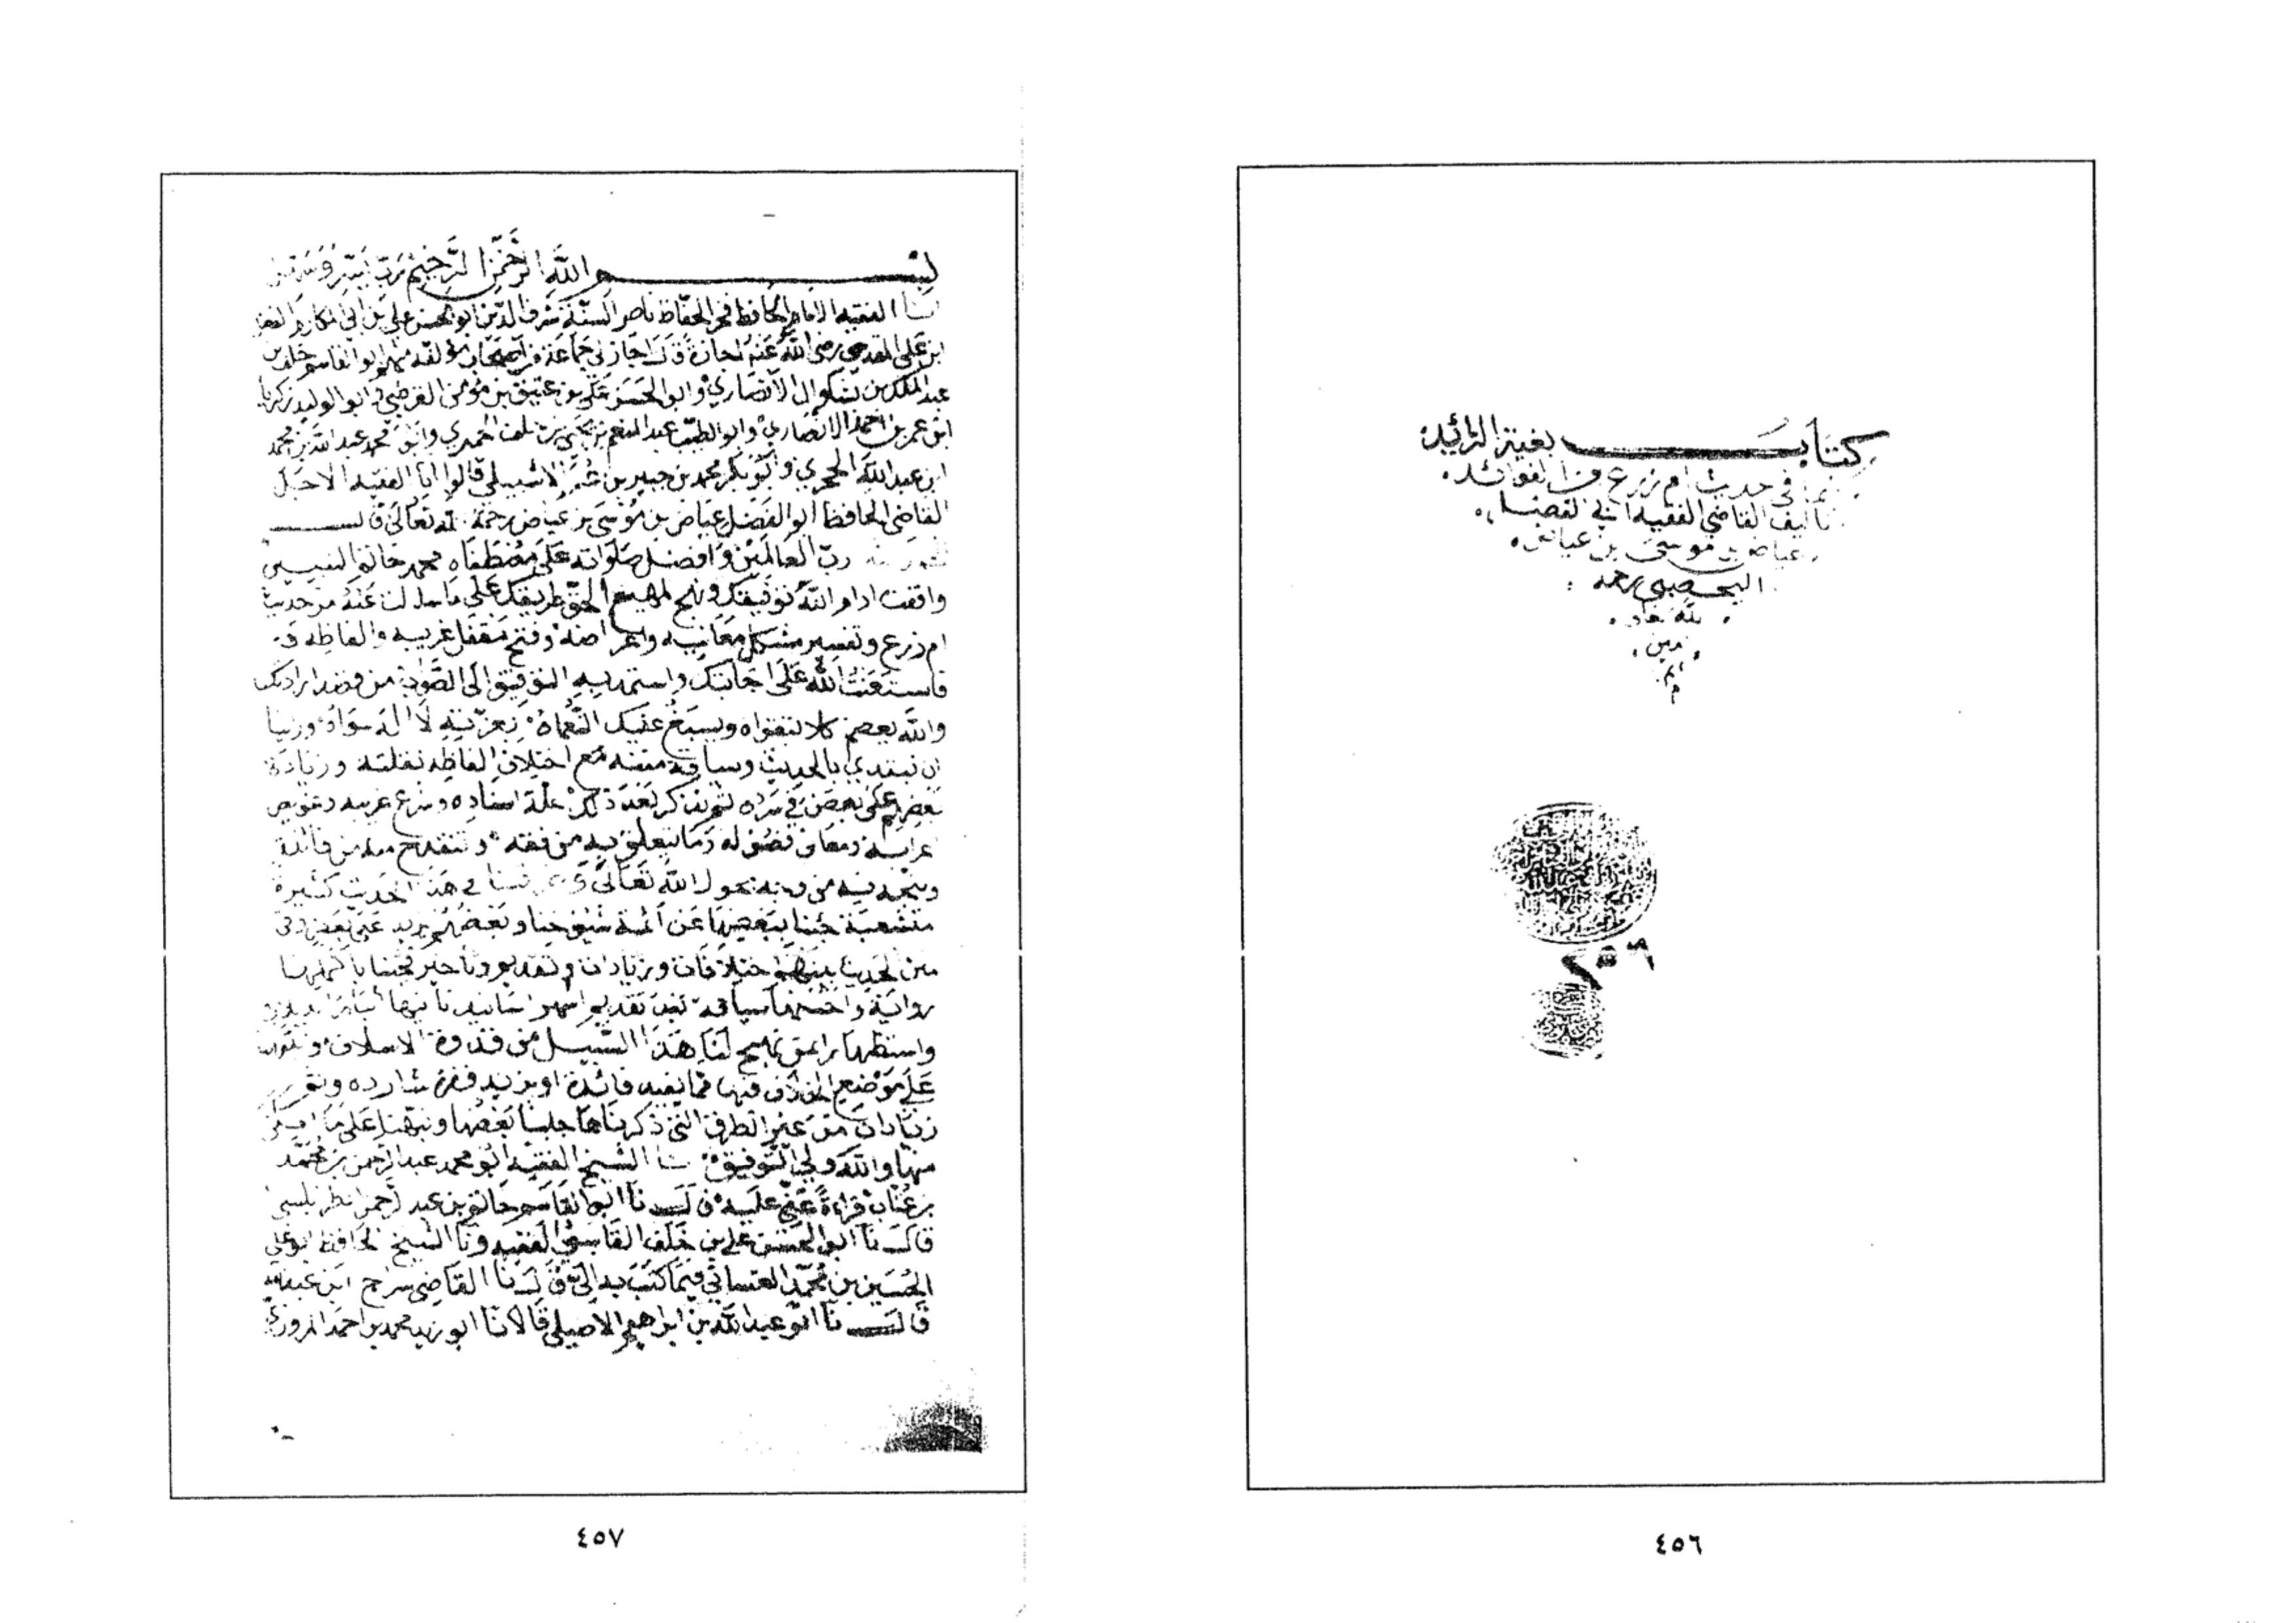 كتاب بغية الرائد
لما في حديث ام زرع من الفوائد
تأليف القاضي الفقيه ابي الفضل
عياض بن موسى بن عياض
اليحصبي رحمه
الله
امين
٤٥٦
بسم الله الرحمن الرحيم رب يسر
الفقيه الامام الحافظ فخر الحفاظ ناصر السنة شرف الدين ابو الحسن علي بن
ابن علي المقدسي رضي الله عنه اجازة قال اجاز لي جماعة من اصحاب مؤلفه منهم ابو القاسم خلف بن
عبد الملك بن بشكوال الانصاري وابو الحسن علي بن عتيق بن مؤمن القرطبي وابو الوليد زكريا
ابن عمر بن احمد الانصاري وابو الطيب عبد المنعم بن يحيى بن خلف الحميري وابو محمد عبد الله بن محمد
ابن عبد الله الحجري وابو بكر محمد بن جبير بن الاشبيلي قالوا انا الفقيه الاجل
القاضي الحافظ ابو الفضل عياض بن موسى بن عياض رحمه الله تعالى قال
رب العالمين وافضل صلواته على مصطفاه محمد خاتم النبيين
وافقت ادام الله توفيقك ونهج لمهيع الحق طريقك على ما سالت عنه من حديث
ام زرع وتفسير مشكل معانيه واغراضه وفتح مقفل غريبه والفاظه
فاستعنت الله على اجابتك واستمديه التوفيق الى الصواب من
والله يعصم كلا بتقواه ويسبغ عليك النعماه بعزته لا اله سواه وراينا
ان نبتدي بالحديث وسياقة متنه مع اختلاف الفاظ نقلته وزيادة
بعضهم على بعض في سرده ثم نذكر بعد ذلك علة اسناده وشرح غريبه وعويص
اعرابه ومعاني فصوله وما يتعلق به من فقه وتنقدح منه من فائدة
بحول الله تعالى في هذا الحديث كثيرة
متشعبة جئنا ببعضها عن ائمة شيوخنا وبعضهم يزيد على بعض في
متن الحديث بينهم اختلافات وزيادات وتقديم وتاخير فجئنا باكملها
رواية واحسنها سياقة بعد تقديم اشهر اسانيدنا فيها
واستظهارا بمن نهج لنا هذا السبيل من قدوة الاسلاف
على موضع الخلاف فيها مما يفيد فائدة او يزيد فقرة شارده
زيادات من غير الطرق التي ذكرناها جلبنا بعضها ونبهنا على ما
منها والله ولي التوفيق ثنا الشيخ الفقيه ابو محمد عبد الرحمن بن محمد
بن عتاب قراءة مني عليه قال نا ابو القاسم حاتم بن عبد الرحمن الطرابلسي
قال نا ابو الحسن علي بن خلف القابسي الفقيه ونا الشيخ الحافظ ابو علي
الحسين بن محمد الغساني فيما كتب به الي قال نا القاضي سراج ابن عبد الله
قال نا ابو عبد الله بن ابراهيم الاصيلي قالا نا ابو زيد محمد بن احمد المروزي
٤٥٧